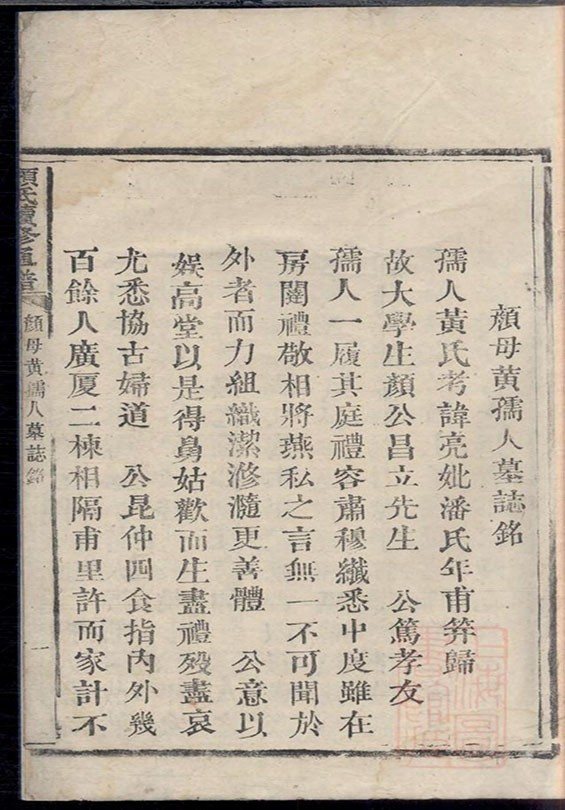 顏母黃孺人墓誌銘
孺人黃氏考諱亮妣潘氏年甫笄歸
故大學生顏公昌立先生　公篤孝友
孺人一履其庭禮容肅穆纖悉中度雖在
房闥禮敬相將燕私之言無一不可聞於
外者而力組織潔滫瀡更善體　公意以
娛高堂以是得舅姑歡而生盡禮歿盡哀
尤悉協古婦道　公昆仲四食指內外幾
百餘人廣厦二棟相隔甫里許而家計不
顏氏續修通譜
顏母黃孺人墓誌銘
一